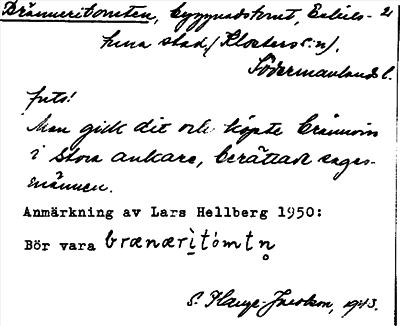 Bränneritomten, byggnadstomt, Eskils- 21
tuna stad, (Klosters s:n),
Södermanlands l.
Inte!
Man gick dit och köpte brännvin
i stora ankare, berättade sages-
männen.
Anmärkning av Lars Hellberg 1950:
Bör vara brænærìtòmtn̥
S. Hauge-Jacobson, 1943.